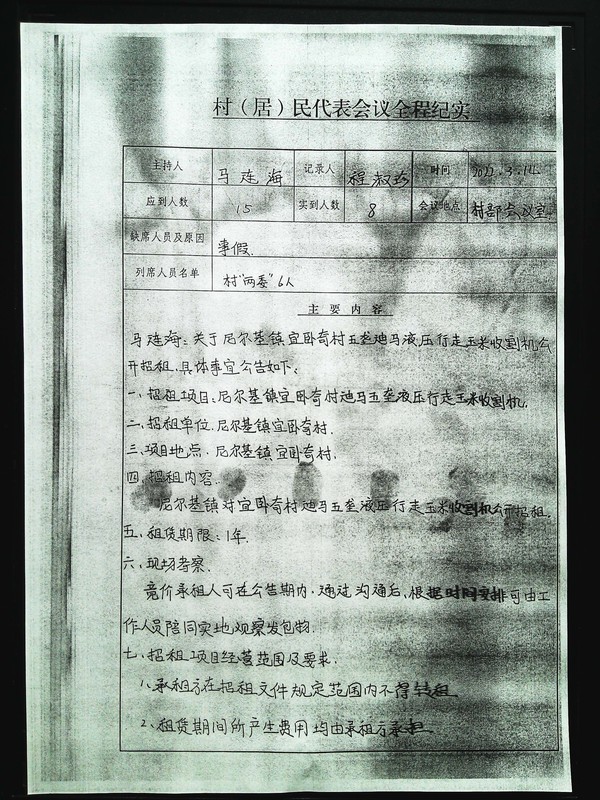 村（居）民代表会议全程纪实
主持人 马连海 记录人 程淑珍 时间 2022.3.14.
应到人数 15 实到人数 8 会议地点 村部会议室
缺席人员及原因 事假.
列席人员名单 村"两委"6人
主要内容
马连海：关于尼尔基镇宜卧奇村五垄迪马液压行走玉米收割机公
开招租，具体事宜公告如下：
一、招租项目：尼尔基镇宜卧奇村迪马五垄液压行走玉米收割机.
二、招租单位. 尼尔基镇宜卧奇村.
三、项目地点. 尼尔基镇宜卧奇村.
四、招租内容.
尼尔基镇对宜卧奇村迪马五垄液压行走玉米收割机公开招租.
五、租赁期限：1年.
六、现场考察.
竞价承租人可在公告期内，通过沟通后，根据时间安排可由工
作人员陪同实地观察发包物.
七、招租项目经营范围及要求.
1、承租方在招租文件规定范围内不得转租
2、租赁期间所产生费用均由承租方承担